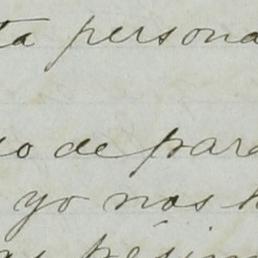 ta persona
io de para
yo nos h
as pésim